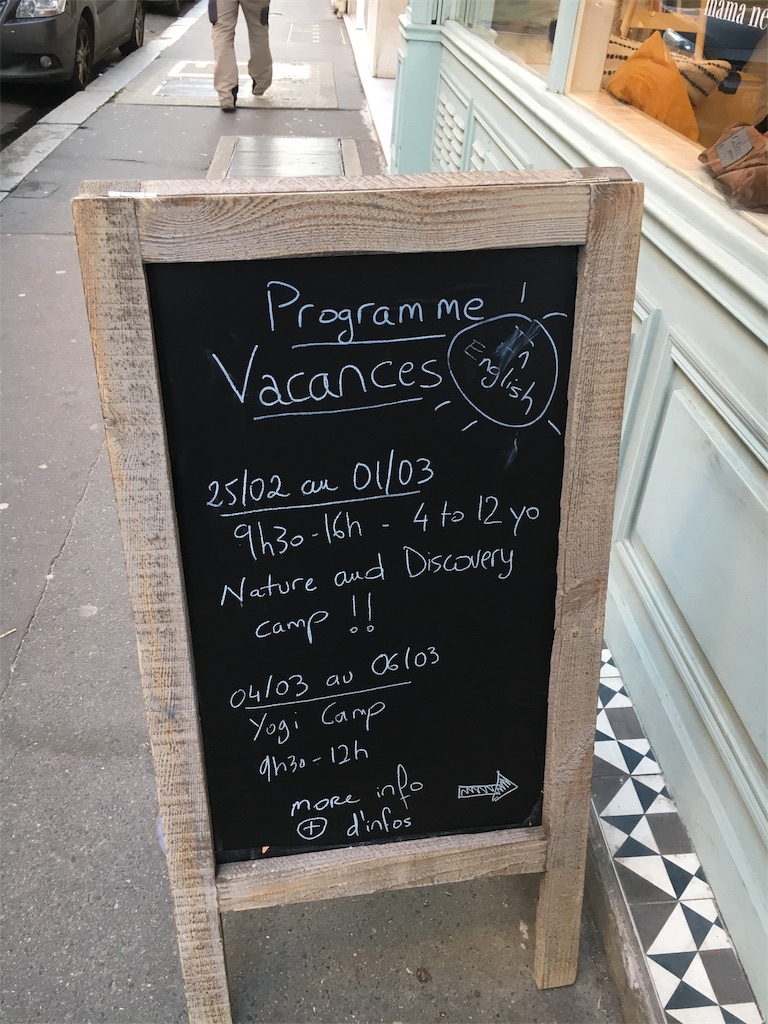 mama ne
Programme
Vacances
In
English
25/02 au 01/03
9h30-16h - 4 to 12 yo
Nature and Discovery
camp !!
04/03 au 06/03
Yogi Camp
9h30-12h
more info
+ d'infos